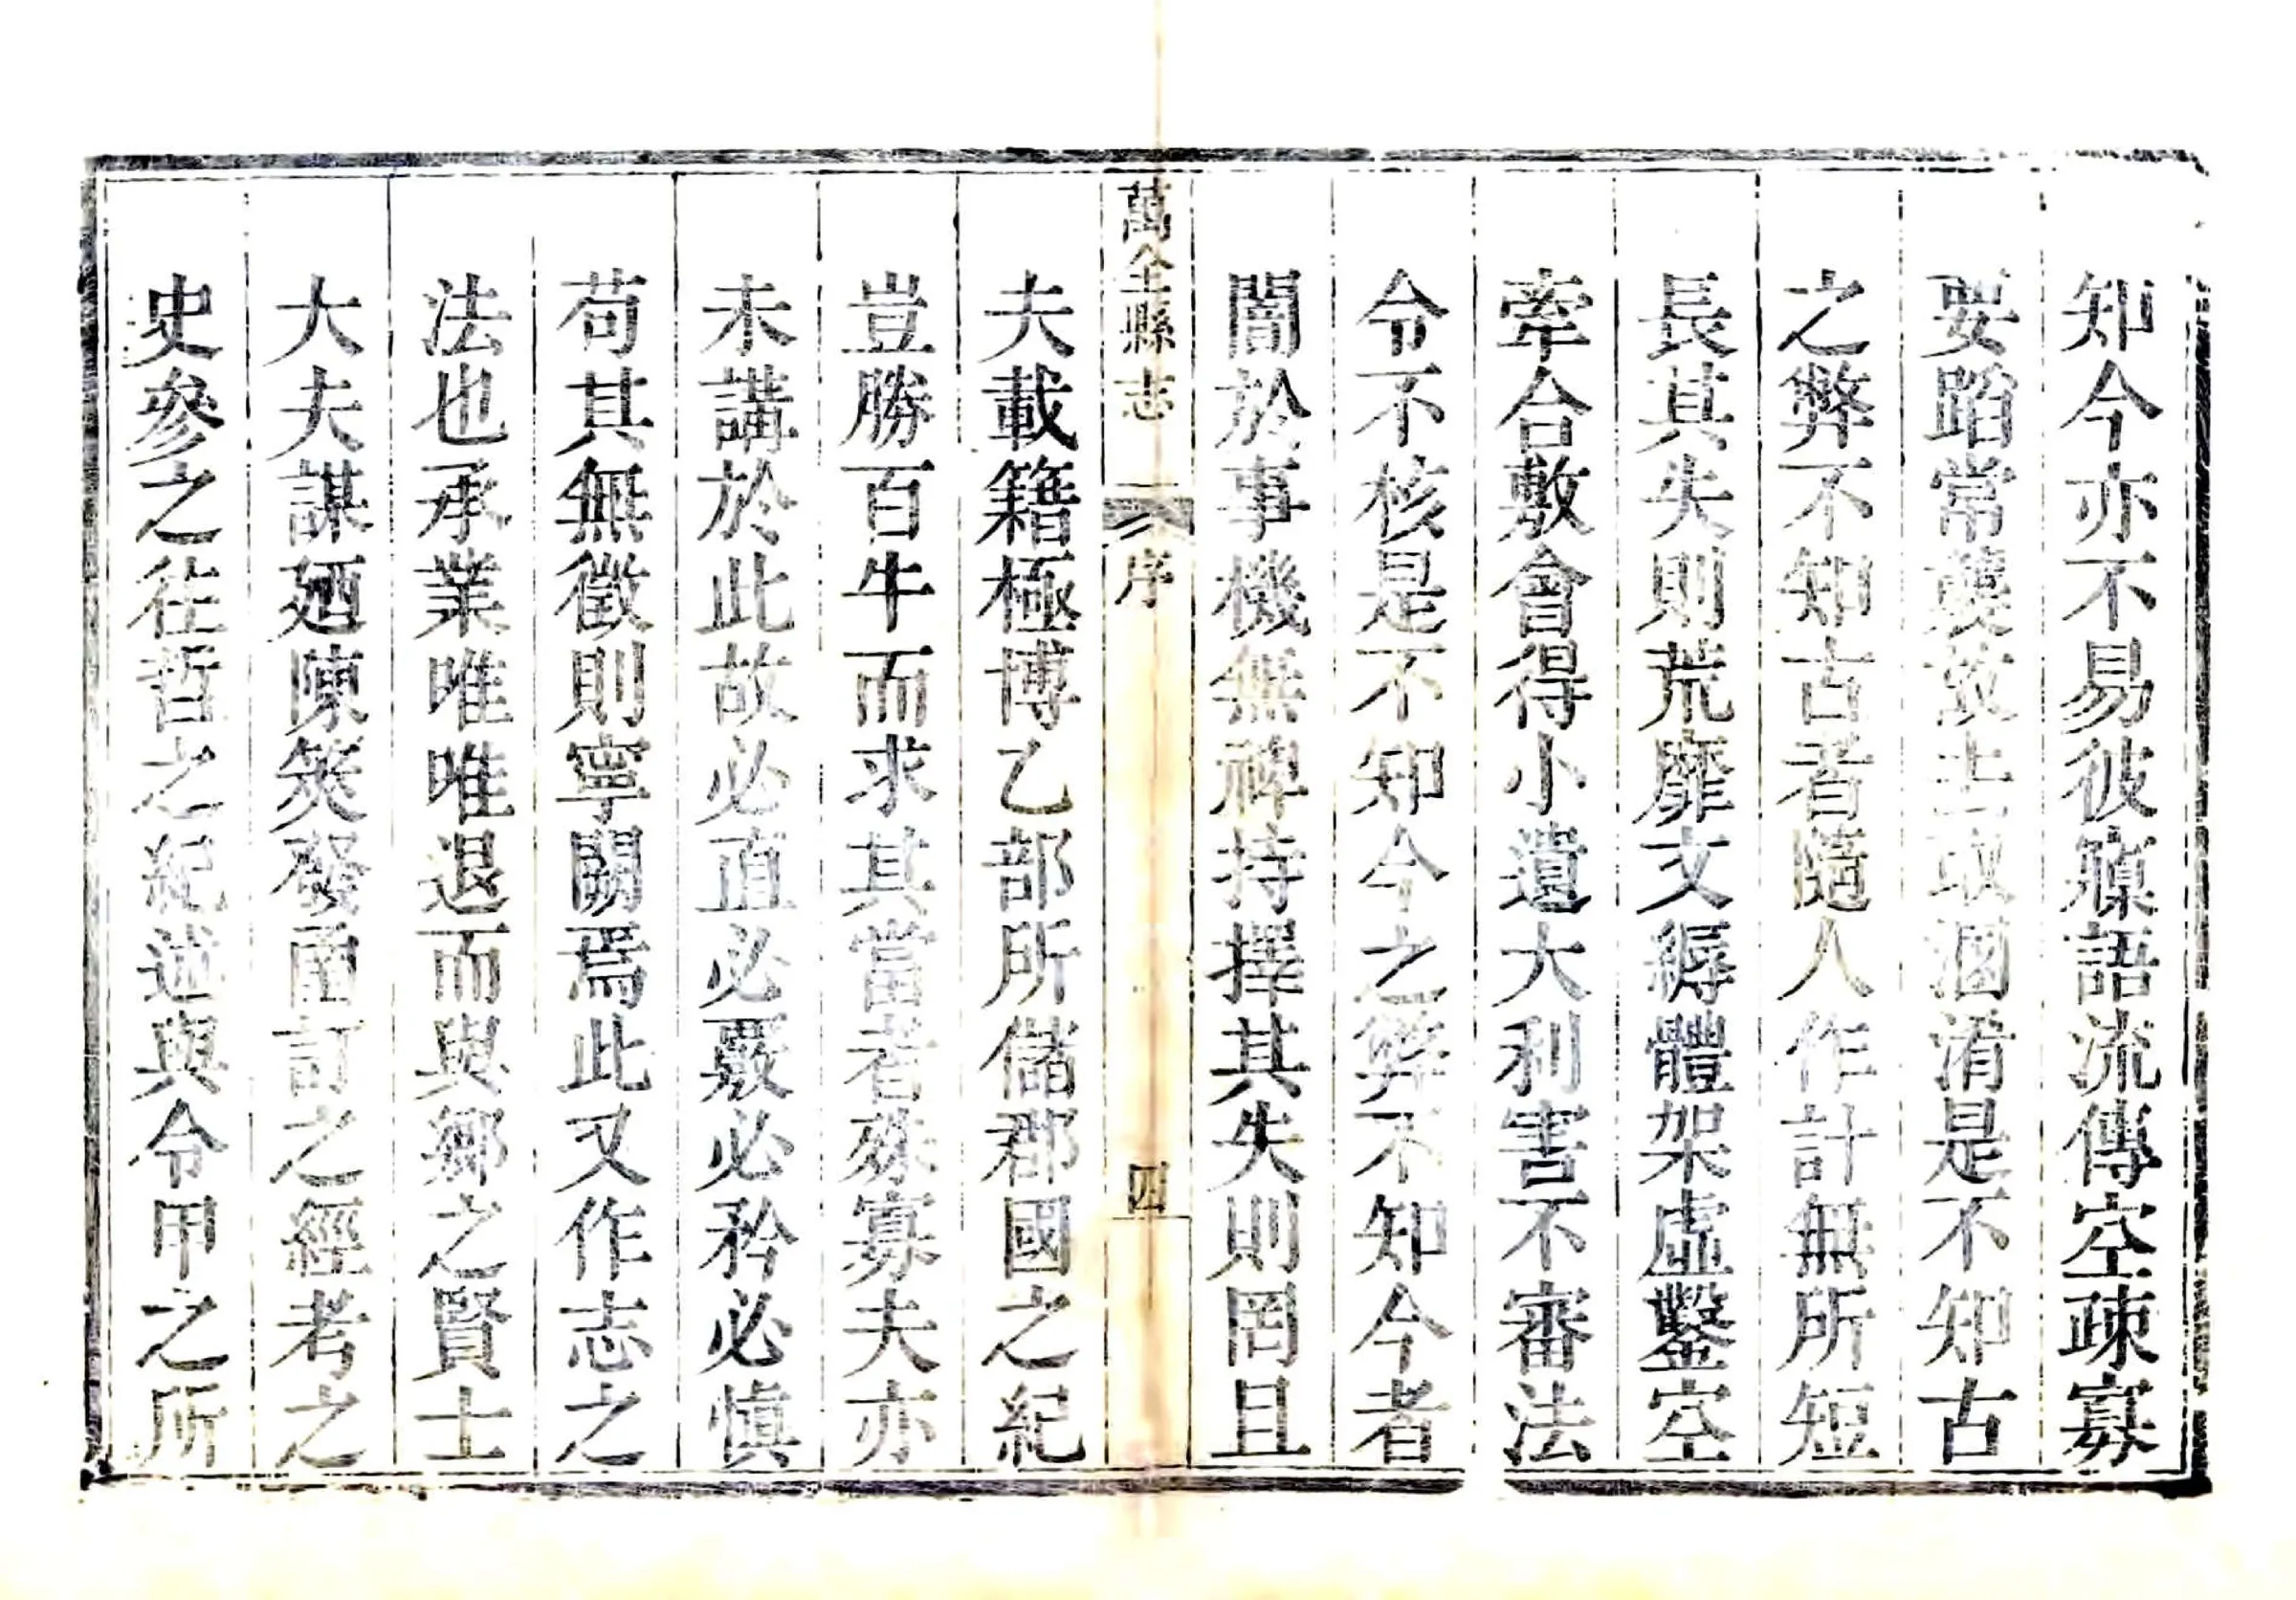 知今亦不易彼寱語流傳空疎寡
要蹈常襲故去取溷淆是不知古
之弊不知古者隨人作計無所短
長其失則荒靡文縟體架虛鑿空
牽合敷會得小遺大利害不審法
令不核是不知今之弊不知今者
闇於事機無裨持擇其失則罔且
萬全縣志 序 四
夫載籍極博乙部所儲郡國之紀
豈勝百牛而求其當者殊寡夫亦
未講於此故必直必覈必矜必慎
苟其無徵則寧闕焉此又作志之
法也承業唯唯退而與鄉之賢士
大夫謀廼陳筴發凾訂之經考之
史參之往哲之紀述與令甲之所